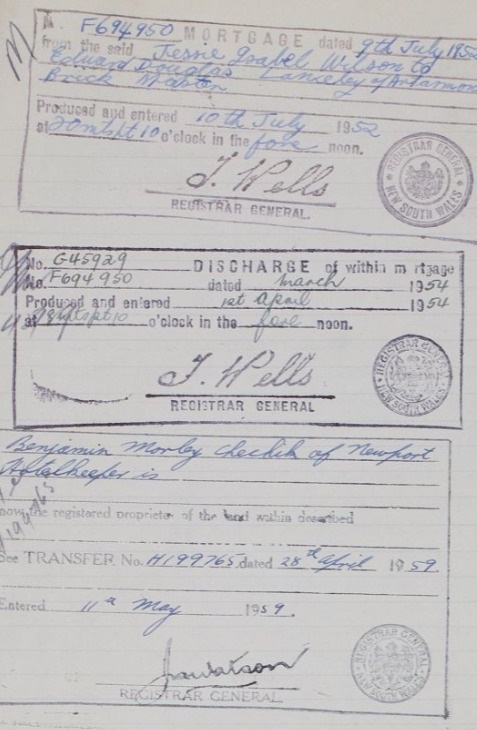 No. F694950 MORTGAGE dated 9th July 1952
from the said Jessie Isabel Wilson to
Edward Douglas Lanceley of Artarmon
Brick Maker
Produced and entered 10th July 1952
at 20 mts pt 10 o'clock in the fore noon.
T. Wells
REGISTRAR GENERAL
REGISTRAR GENERAL
NEW SOUTH WALES
No. G45929 DISCHARGE of within mortgage
No. F694950 dated March 1954
Produced and entered 1st April 1954
at mts pt 10 o'clock in the fore noon.
T. Wells
REGISTRAR GENERAL
REGISTRAR GENERAL
NEW SOUTH WALES
Benjamin Morley Chechik of Newport
Hotelkeeper is
now the registered proprietor of the land within described
See TRANSFER No. H199765 dated 28th April 1959
Entered 11th May 1959.
Jawatson
REGISTRAR GENERAL
REGISTRAR GENERAL
NEW SOUTH WALES